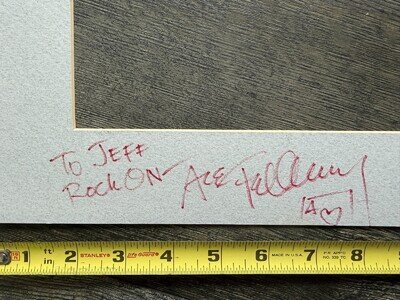 To JEFF
Rock ON - Ace Frehley
1 ft 2 STANLEY 3 Life Guard 4 5 6 MADE IN U.S.A. 7 8